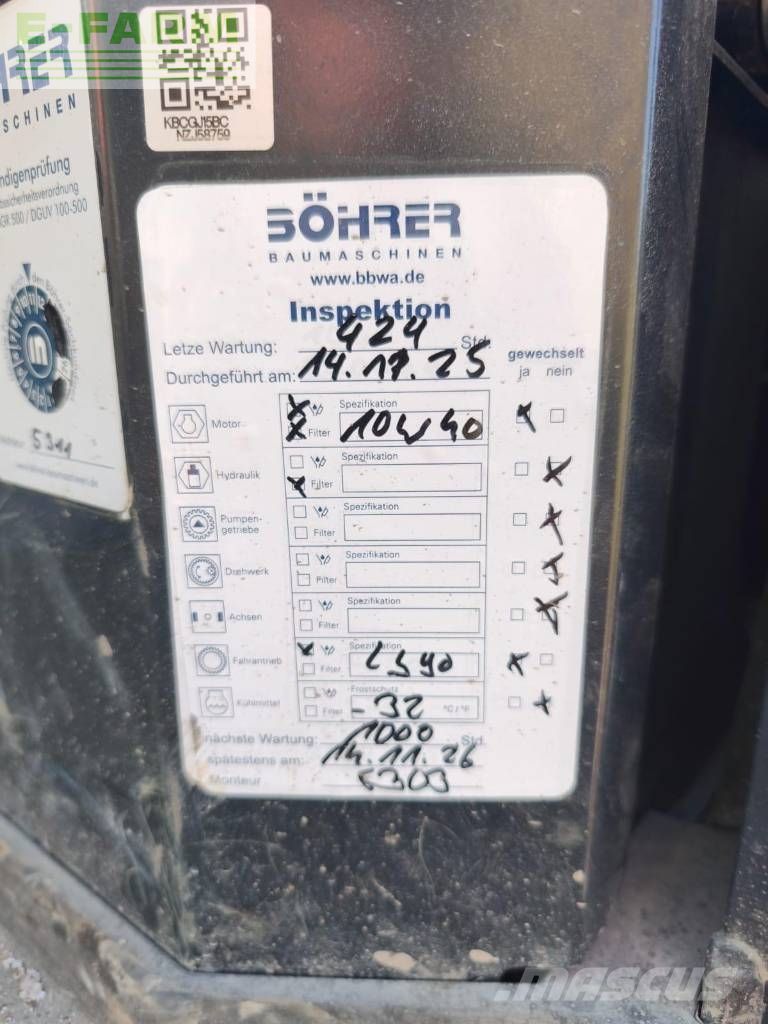 E-FARM
KBCGJ15BC
NZJ58759
HRER
SCHINEN
ndigenprüfung
bssicherheitsverordnung
GR 500 / DGUV 100-500
5311
BÖHRER
BAUMASCHINEN
www.bbwa.de
Inspektion
Letze Wartung: 424 Std.
Durchgeführt am: 14.11.25
gewechselt
ja nein
Motor Spezifikation
Filter 10W40
Hydraulik Spezifikation
Filter
Pumpen-
getriebe Spezifikation
Filter
Drehwerk Spezifikation
Filter
Achsen Spezifikation
Filter
Fahrantrieb Spezifikation
Filter LS90
Kühlmittel Frostschutz
Filter -32 °C / °F
nächste Wartung: 1000 Std.
spätestens am: 14.11.26
Monteur 5303
MASCUS